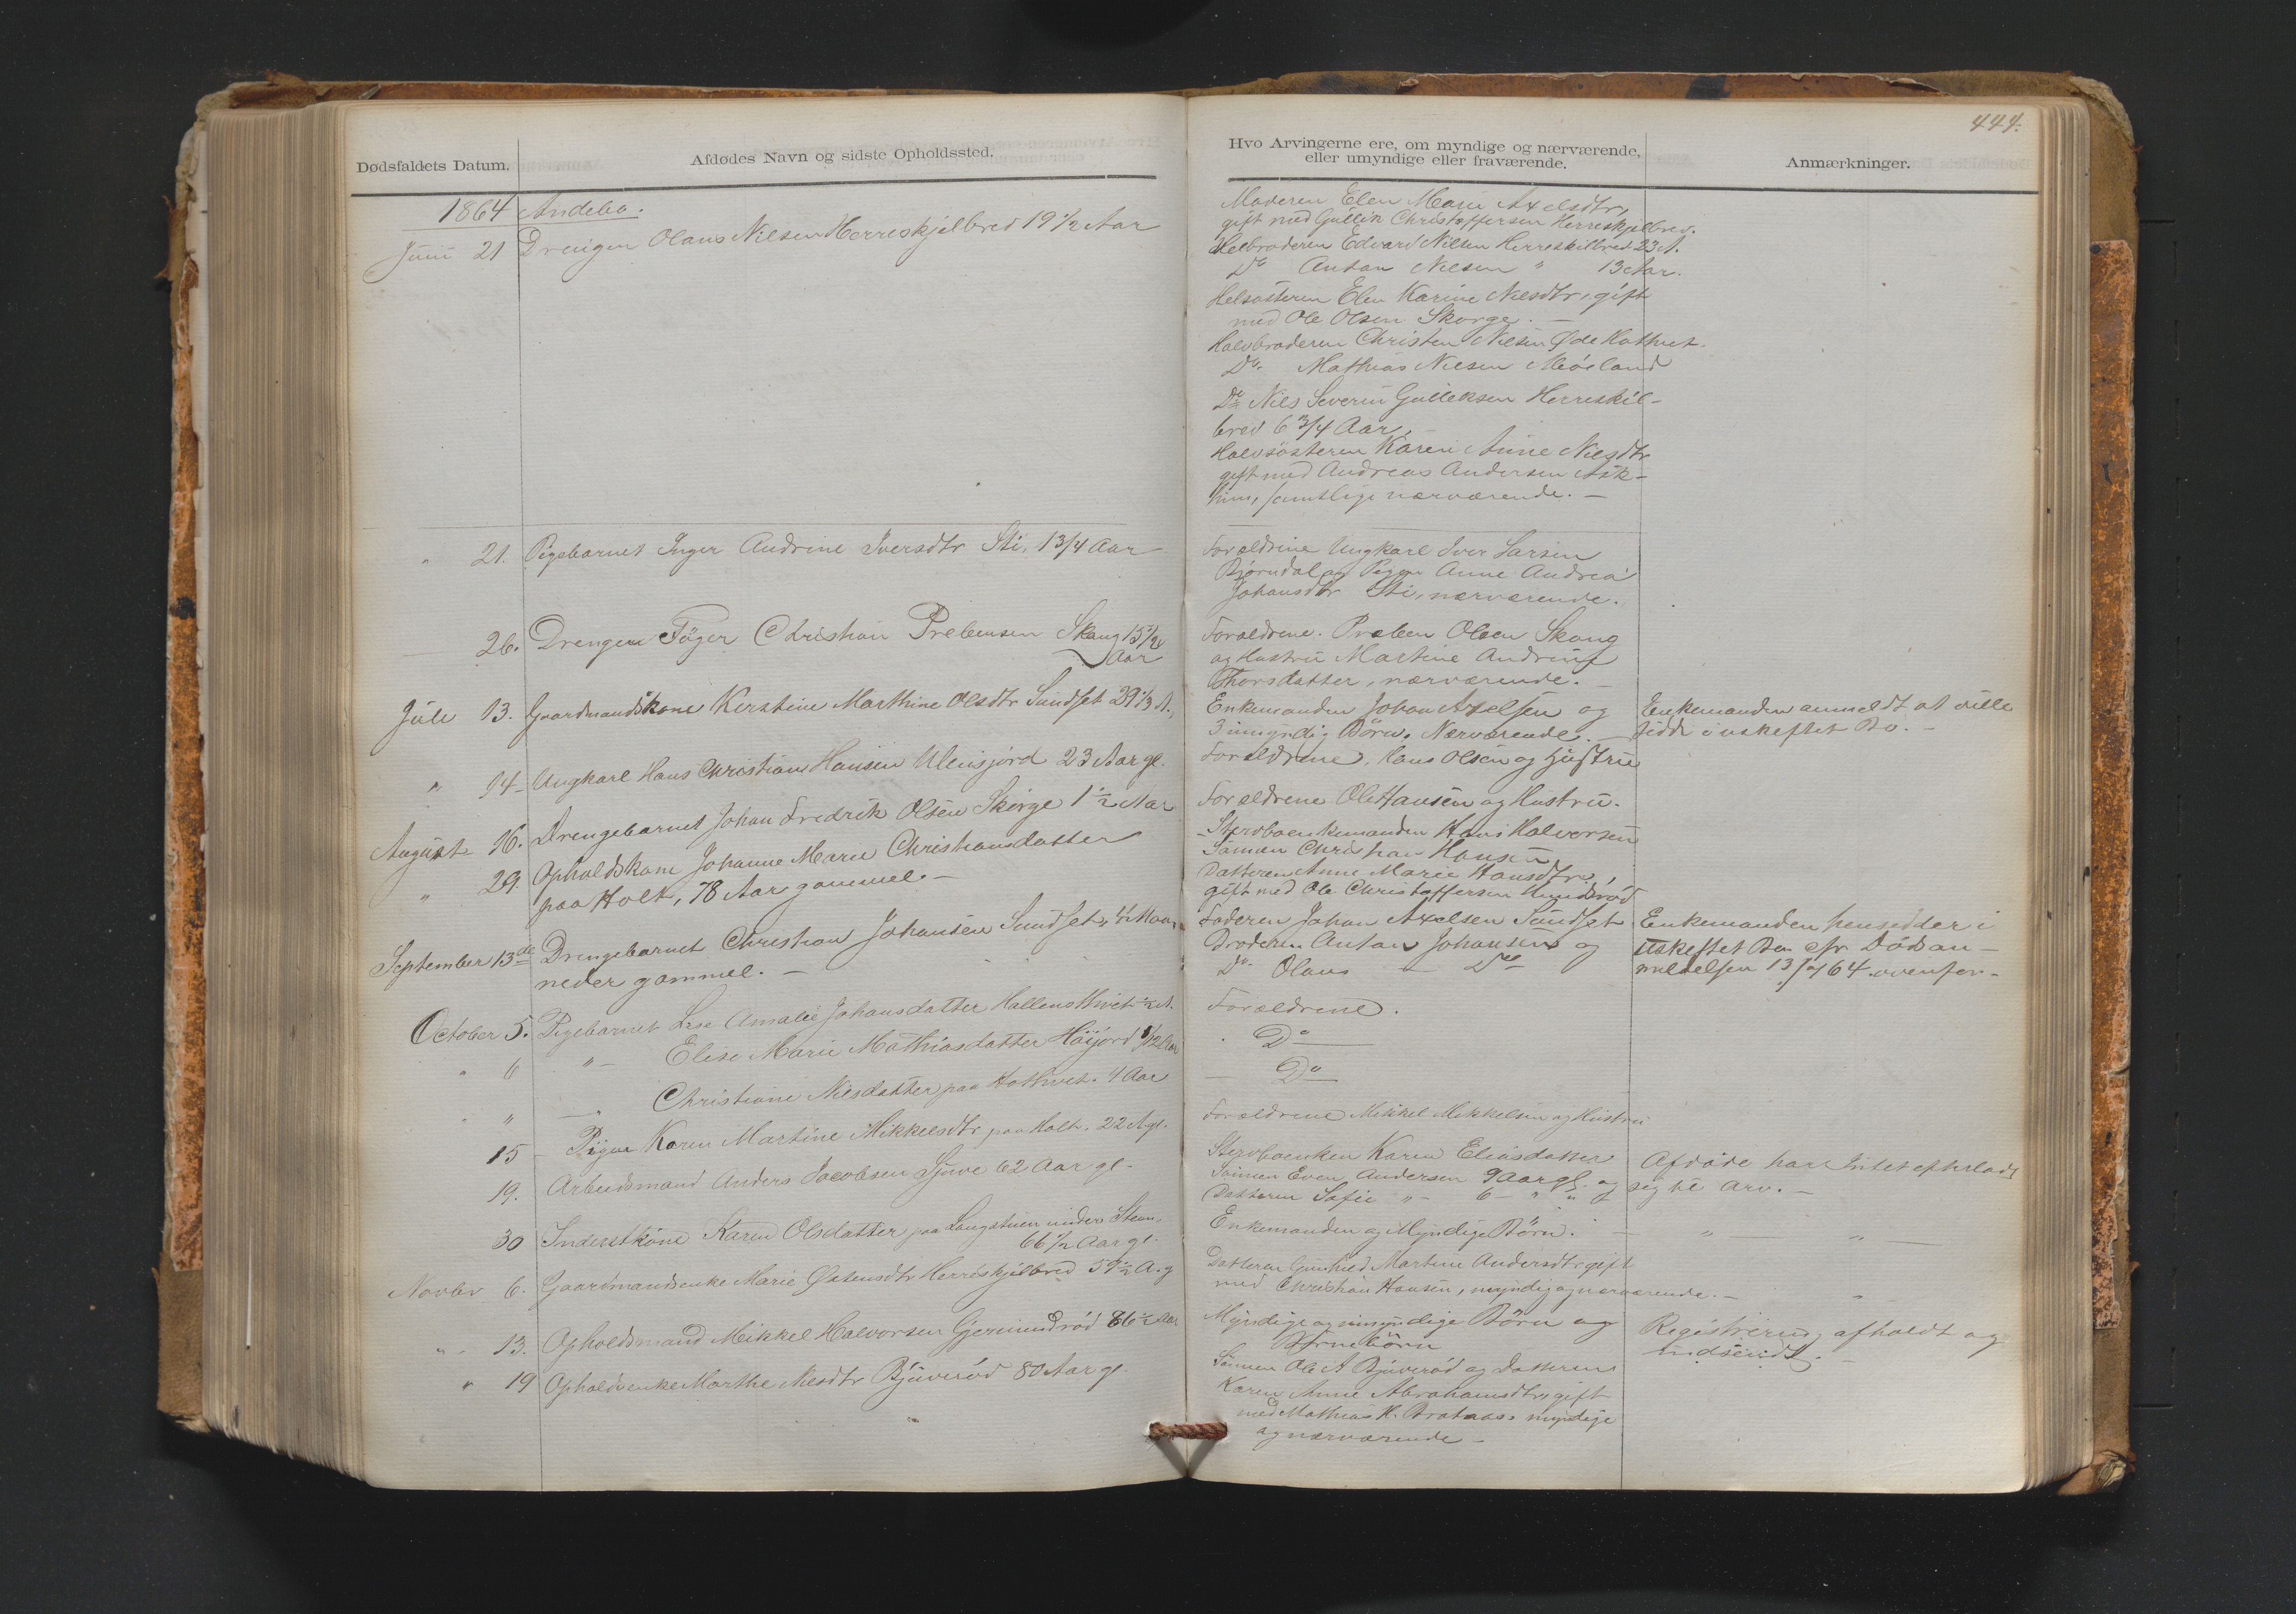 444.
Dødsfaldets Datum.
Afdødes Navn og sidste Opholdssted.
Hvo Arvingerne ere, om myndige og nærværende,
eller umyndige eller fraværende.
Anmærkninger.
1864 Andebo.
Juni 21 Drengen Olaus Nilsen Herreskjelbred 19 1/2 Aar
Moderen Elen Marie Axelsdtr,
gift med Gullik Christoffersen Herreskjelbrev.
Helbroderen Edvard Nilsen Herreskilbred 23 A.
Do Anton Nilsen " 13 Aar.
Helsøsteren Elen Karine Nilsdtr, gift
med Ole Olsen Skorge. —
Halvbroderen Christen Nilsen Øde Hothvet.
Do. Mathias Nilsen Møiland
Do Nils Severin Gulleksen Herreskil-
bred 6 3/4 Aar,
Halvsøsteren Karen Anne Nilsdtr
gift med Andreas Andersen Ask-
him, samtlige nærværende. —
" 21. Pigebarnet Inger Andrine Iversdtr Sti, 1 3/4 Aar
Forældrene Ungkarl Iver Larsen
Bjørndal og Pigen Anne Andrea
Johansdtr Sti, nærværende.
26. Drengen Föger Christian Prebensen Skaug 15 1/2
Aar
Forældrene. Preben Olsen Skaug
og Hustru Martine Andrine
Thorsdatter, nærværende. —
Juli 13. Gaardmandskone Kirstine Marthine Olsdtr Sundset 29 1/3 A.
Enkemanden Johan Axelsen og
3 umyndig Börn. Nærværende. —
Enkemanden anmeldt at ville
sidde i uskeftet Bo. —
" 14 - Ungkarl Hans Christian Hansen Ulensjord 23 Aar gl.
Forældrene, Hans Olsen og Hustru
August 16. Drengebarnet Johan Fredrik Olsen Skorge 1 1/2 Aar
Forældrene Ole Hansen og Hustru.
" 29. Opholdskone Johanne Marie Christiansdatter
paa Holt, 78 Aar gammel. —
Stervboenkemanden Hans Halvorsen
Sönnen Christian Hansen,
Datteren Anne Marie Hansdtr,
gift med Ole Christoffersen
September 13de Drengebarnet Christian Johansen Sundset, 4 Maa-
neder gammel. —
Faderen Johan Axelsen Sundset
Broderen Anton Johansen og
Do. Olaus — Do
Enkemanden hensidder i
uskeftet Bo cfr. Dödsan-
meldelsen 13/7 64. ovenfor.
October 5. Pigebarnet Lise Amalie Johansdatter Hallensthvet 1/2 A.
Forældrene.
" 6 " - Elise Marie Mathiasdatter Höijord 1 1/2 Aar
Do
" " — " Christiane Nilsdatter paa Hothvet. 4 Aar
Do
15 - Pigen Karen Martine Mikkelsdtr paa Holt. 22 A gl.
Forældrene Mikkel Mikkelsen og Hustru
19. Arbeidsmand Anders Jacobsen Sjuve 62 Aar gl -
Stervboenken Karen Eliasdatter
Sönnen Even Andersen 9 Aar gl. og
Datteren Sofie " - 6 - " "
Afdöde har Intet efterladt
sig til Arv. —
30 Inderstkone Karen Olsdatter paa Langstuen under Steen,
66 1/2 Aar gl.
Enkemanden og Myndige Börn. — " " —
Novbr 6. Gaardmandsenke Marie Østensdtr Herreskjelbred 59 1/2 A. g
Datteren Gunhild Martine Andersdtr gift
med Christian Hansen, myndig og nærværende. — "
" - 13. Opholdsmand Mikkel Halvorsen Gjermundröd 86 1/2 Aar
Myndige og umyndige Börn og
Börnebörn
Registrering afholdt og
indsendt. —
" 19 Opholdsenke Marthe Nilsdtr Bjuveröd 80 Aar gl.
Sönnen Ole A Bjuveröd og Datteren
Karen Anne Abrahamsdtr, gift
med Mathias H. Brataas, myndige
og nærværende —